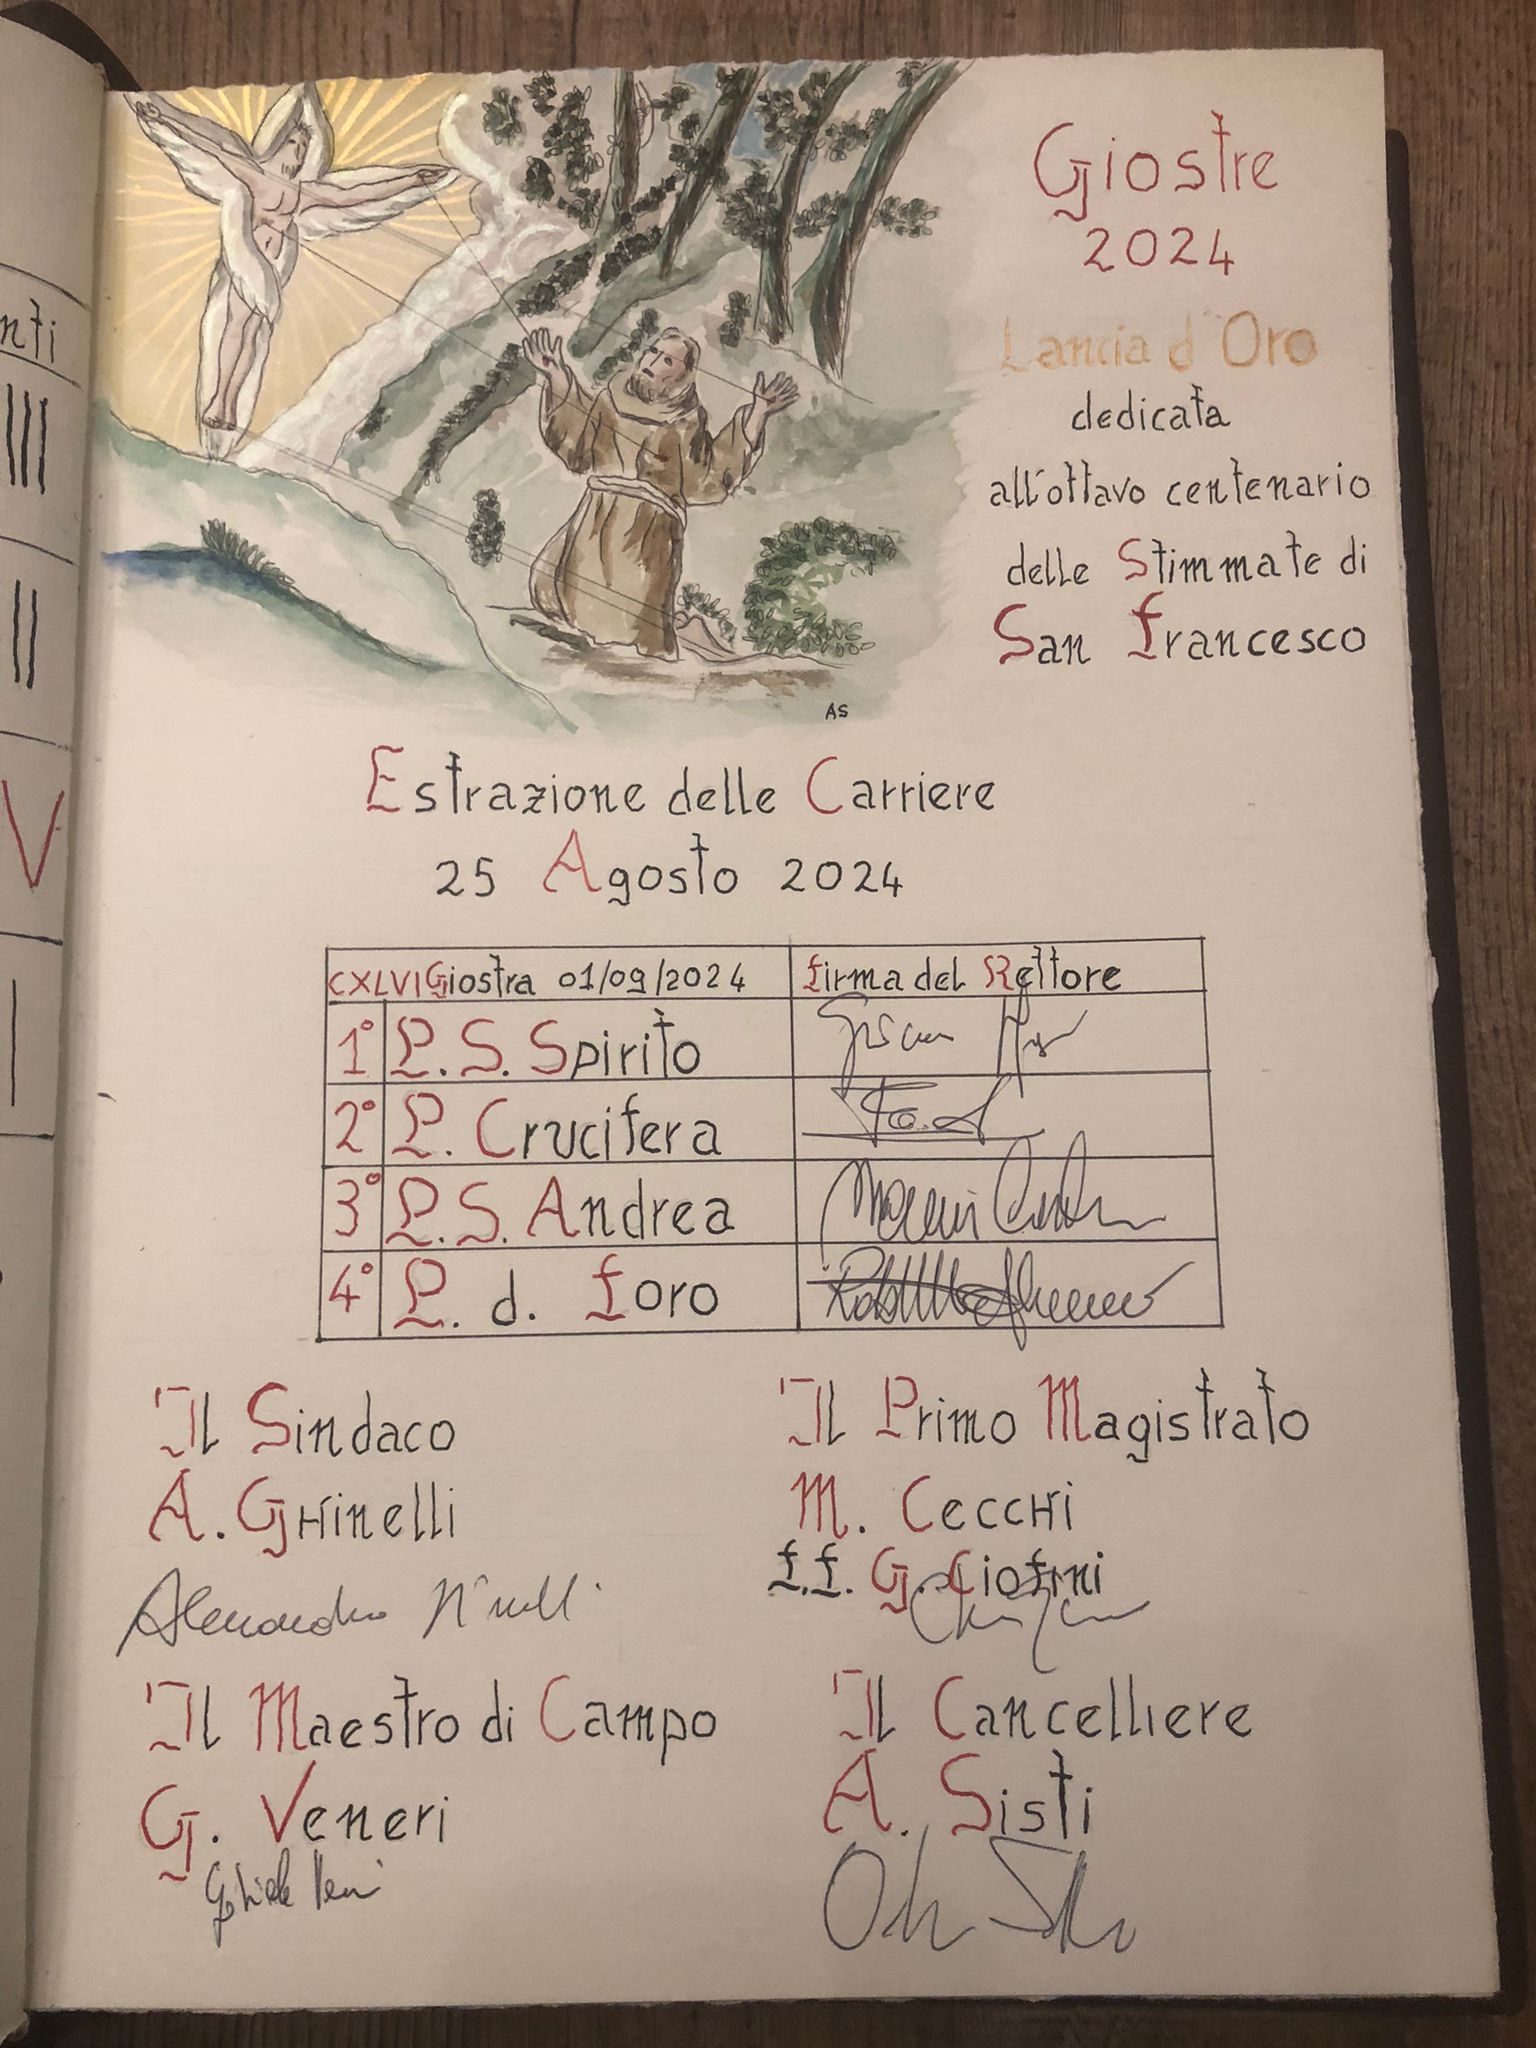 nti
III
II
V
I
Giostre
2024
Lancia d'Oro
dedicata
all'ottavo centenario
delle Stimmate di
San Francesco
AS
Estrazione delle Carriere
25 Agosto 2024
CXLVI Giostra 01/09/2024 firma del Rettore
1° P. S. Spirito
2° P. Crucifera
3° P. S. Andrea
4° P. d. foro
Il Sindaco
A. GHinelli
Alessandro
Il Primo Magistrato
M. CeccHi
f.f. G. Ciofini
Il Maestro di Campo
G. Veneri
Il Cancelliere
A. Sisti